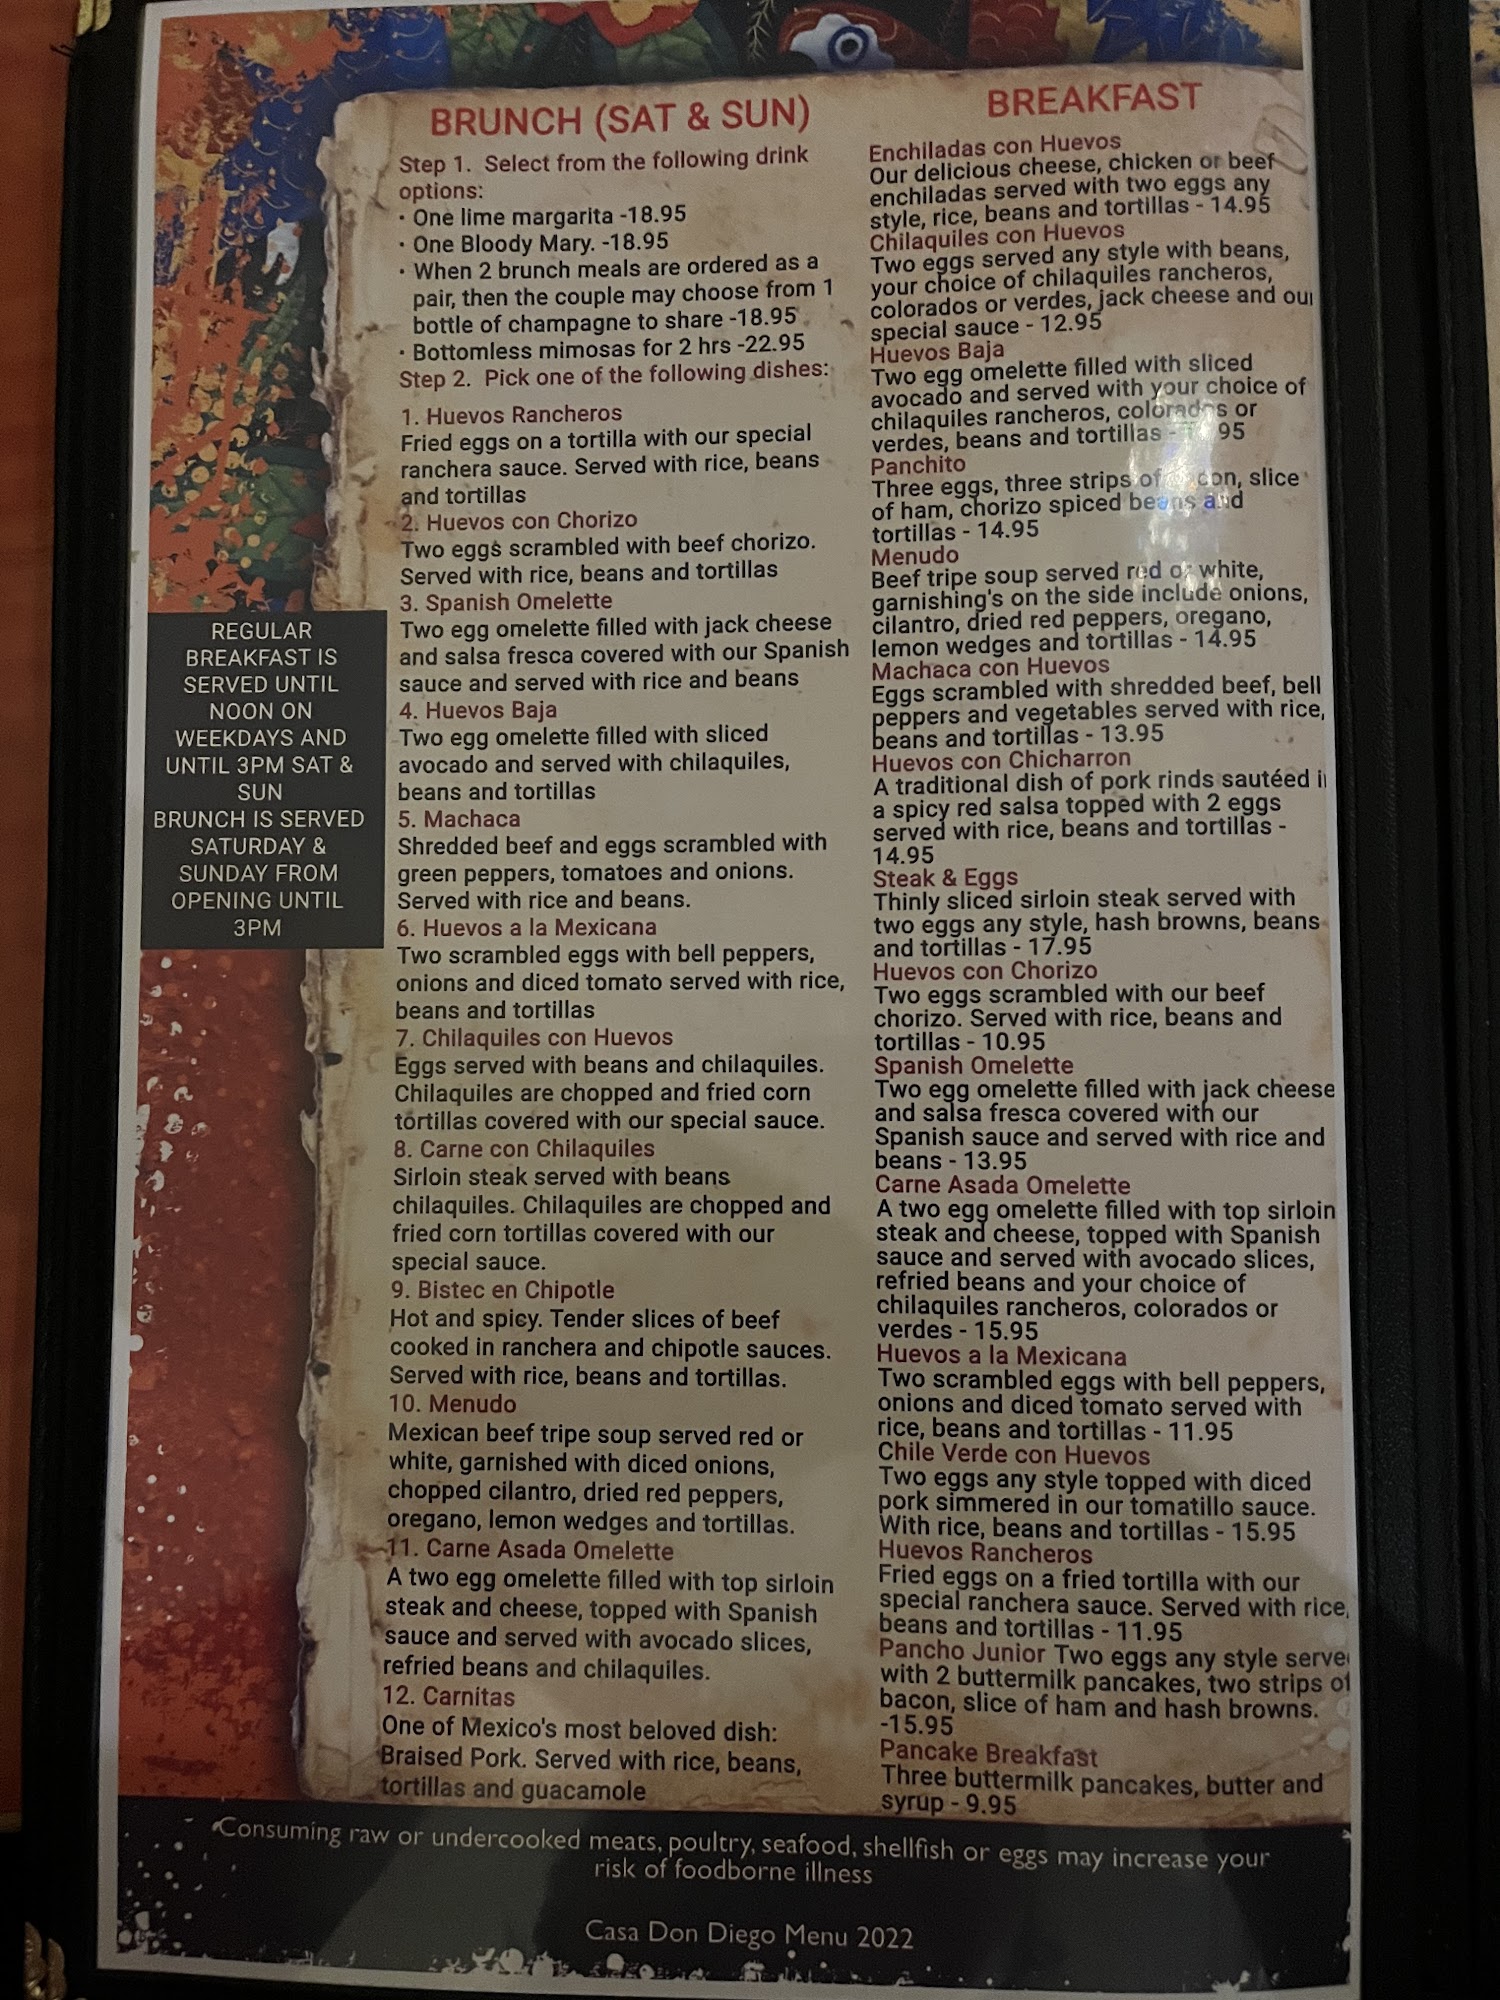 BRUNCH (SAT & SUN)
Step 1. Select from the following drink
options:
· One lime margarita -18.95
· One Bloody Mary. -18.95
· When 2 brunch meals are ordered as a
pair, then the couple may choose from 1
bottle of champagne to share -18.95
· Bottomless mimosas for 2 hrs -22.95
Step 2. Pick one of the following dishes:
1. Huevos Rancheros
Fried eggs on a tortilla with our special
ranchera sauce. Served with rice, beans
and tortillas
2. Huevos con Chorizo
Two eggs scrambled with beef chorizo.
Served with rice, beans and tortillas
3. Spanish Omelette
Two egg omelette filled with jack cheese
and salsa fresca covered with our Spanish
sauce and served with rice and beans
4. Huevos Baja
Two egg omelette filled with sliced
avocado and served with chilaquiles,
beans and tortillas
5. Machaca
Shredded beef and eggs scrambled with
green peppers, tomatoes and onions.
Served with rice and beans.
6. Huevos a la Mexicana
Two scrambled eggs with bell peppers,
onions and diced tomato served with rice,
beans and tortillas
7. Chilaquiles con Huevos
Eggs served with beans and chilaquiles.
Chilaquiles are chopped and fried corn
tortillas covered with our special sauce.
8. Carne con Chilaquiles
Sirloin steak served with beans
chilaquiles. Chilaquiles are chopped and
fried corn tortillas covered with our
special sauce.
9. Bistec en Chipotle
Hot and spicy. Tender slices of beef
cooked in ranchera and chipotle sauces.
Served with rice, beans and tortillas.
10. Menudo
Mexican beef tripe soup served red or
white, garnished with diced onions,
chopped cilantro, dried red peppers,
oregano, lemon wedges and tortillas.
11. Carne Asada Omelette
A two egg omelette filled with top sirloin
steak and cheese, topped with Spanish
sauce and served with avocado slices,
refried beans and chilaquiles.
12. Carnitas
One of Mexico's most beloved dish:
Braised Pork. Served with rice, beans,
tortillas and guacamole
BREAKFAST
Enchiladas con Huevos
Our delicious cheese, chicken or beef
enchiladas served with two eggs any
style, rice, beans and tortillas - 14.95
Chilaquiles con Huevos
Two eggs served any style with beans,
your choice of chilaquiles rancheros,
colorados or verdes, jack cheese and our
special sauce - 12.95
Huevos Baja
Two egg omelette filled with sliced
avocado and served with your choice of
chilaquiles rancheros, colorados or
verdes, beans and tortillas - 95
Panchito
Three eggs, three strips of bacon, slice
of ham, chorizo spiced beans and
tortillas - 14.95
Menudo
Beef tripe soup served red or white,
garnishing's on the side include onions,
cilantro, dried red peppers, oregano,
lemon wedges and tortillas - 14.95
Machaca con Huevos
Eggs scrambled with shredded beef, bell
peppers and vegetables served with rice,
beans and tortillas - 13.95
Huevos con Chicharron
A traditional dish of pork rinds sautéed i
a spicy red salsa topped with 2 eggs
served with rice, beans and tortillas -
14.95
Steak & Eggs
Thinly sliced sirloin steak served with
two eggs any style, hash browns, beans
and tortillas - 17.95
Huevos con Chorizo
Two eggs scrambled with our beef
chorizo. Served with rice, beans and
tortillas - 10.95
Spanish Omelette
Two egg omelette filled with jack cheese
and salsa fresca covered with our
Spanish sauce and served with rice and
beans - 13.95
Carne Asada Omelette
A two egg omelette filled with top sirloin
steak and cheese, topped with Spanish
sauce and served with avocado slices,
refried beans and your choice of
chilaquiles rancheros, colorados or
verdes - 15.95
Huevos a la Mexicana
Two scrambled eggs with bell peppers,
onions and diced tomato served with
rice, beans and tortillas - 11.95
Chile Verde con Huevos
Two eggs any style topped with diced
pork simmered in our tomatillo sauce.
With rice, beans and tortillas - 15.95
Huevos Rancheros
Fried eggs on a fried tortilla with our
special ranchera sauce. Served with rice,
beans and tortillas - 11.95
Pancho Junior Two eggs any style serve
with 2 buttermilk pancakes, two strips of
bacon, slice of ham and hash browns.
-15.95
Pancake Breakfast
Three buttermilk pancakes, butter and
syrup - 9.95
REGULAR
BREAKFAST IS
SERVED UNTIL
NOON ON
WEEKDAYS AND
UNTIL 3PM SAT &
SUN
BRUNCH IS SERVED
SATURDAY &
SUNDAY FROM
OPENING UNTIL
3PM
Consuming raw or undercooked meats, poultry, seafood, shellfish or eggs may increase your
risk of foodborne illness
Casa Don Diego Menu 2022